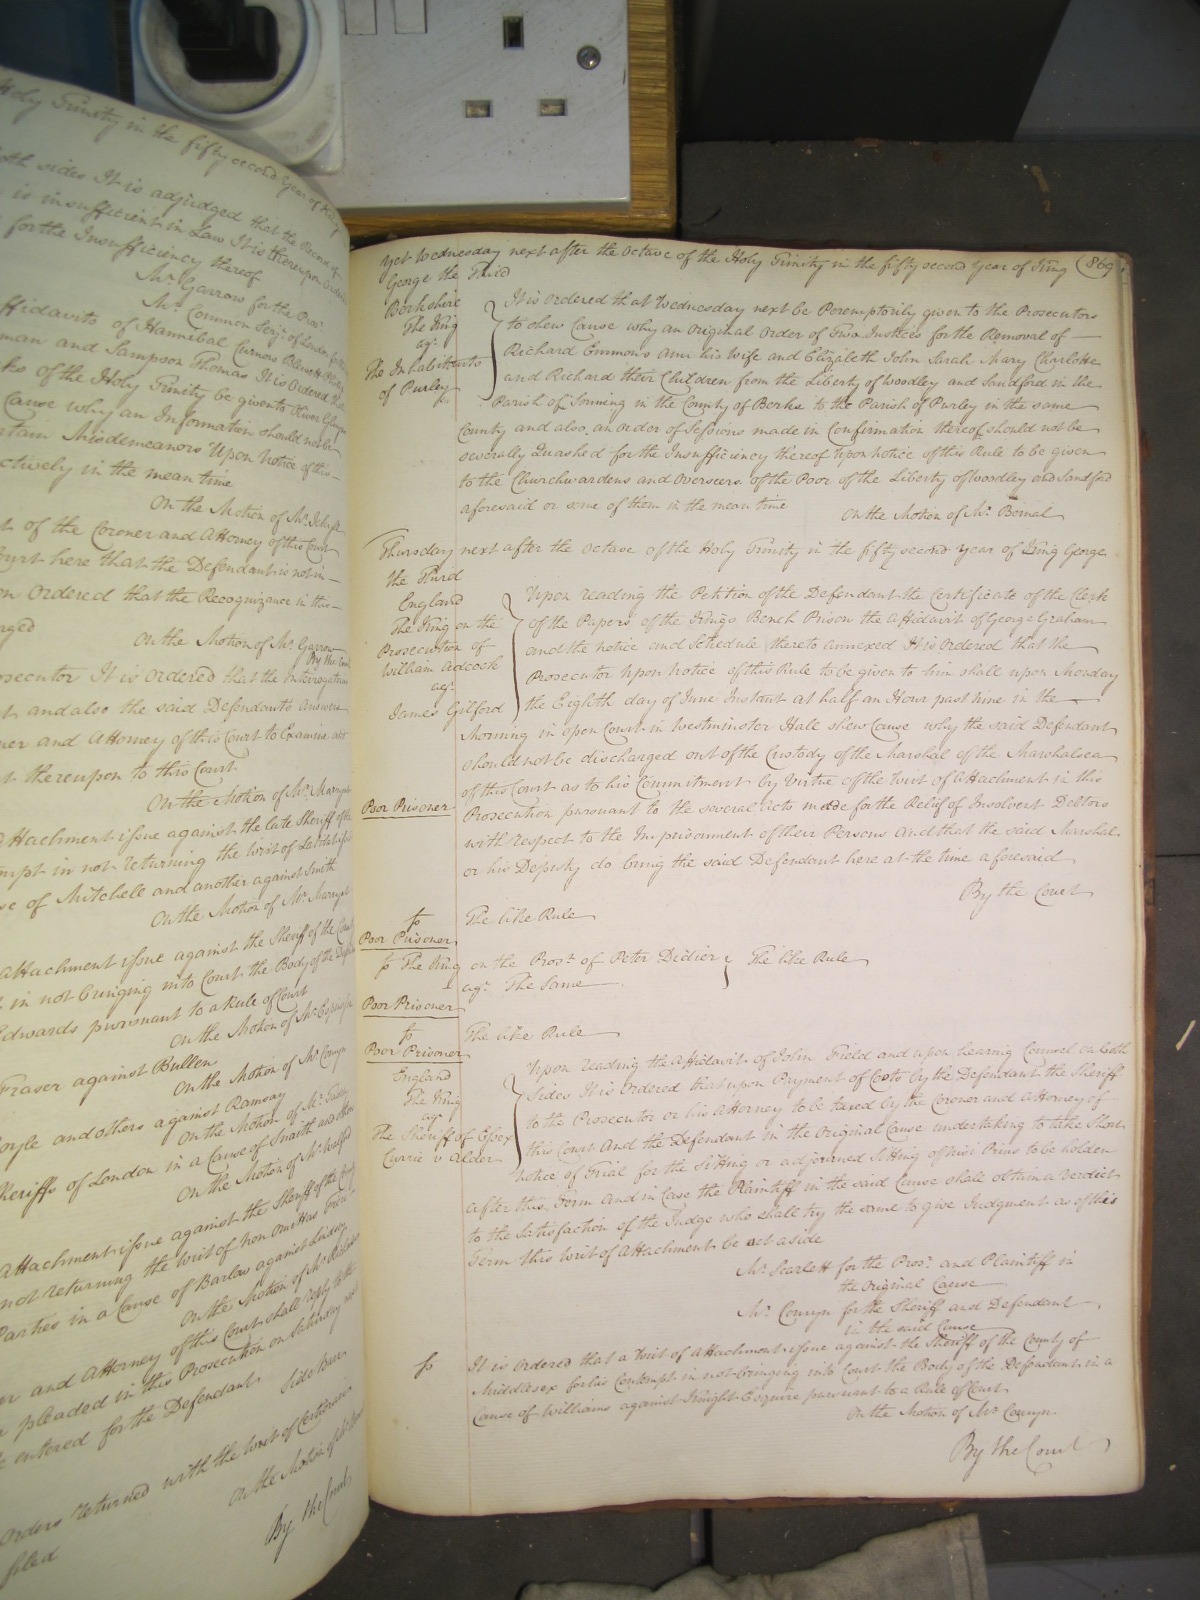 Holy Trinity in the fifty second Year of King
both sides It is adjudged that the Record of
is insufficient in Law It is thereupon Ordered
for the Insufficiency thereof
Mr. Garrow for the Prosr.
Mr. Common Serjt. of London for the
Affidavits of Hannibal Curnow
man and Sampson Thomas It is Ordered
of the Holy Trinity be given to
Cause why an Information should not be
certain Misdemeanors Upon Notice of this
in the mean time
On the Motion of Mr. Jekyll
of the Coroner and Attorney of this Court
Court here that the Defendant is not in
Ordered that the Recognizance in this
On the Motion of Mr. Garrow
By the Court
Prosecutor It is ordered that the Interrogatories
and also the said Defendants Answers
and Attorney of this Court to Examine and
thereupon to this Court
On the Motion of Mr. Marryat
Attachment issue against the late Sheriff of
in not returning the Writ of
of Mitchell and another against Smith
On the Motion of Mr. Marryat
Attachment issue against the Sheriff of the
in not bringing into Court the Body of the
Edwards pursuant to a Rule of Court
On the Motion of Mr.
Fraser against Bullen
On the Motion of Mr. Comyn
and others against Ramsay
On the Motion of Mr.
Sheriffs of London in a Cause of Smith and
On the Motion of Mr.
Attachment issue against the Sheriff of the
not returning the Writ of non Omittas
Parties in a Cause of Barlow against
On the Motion of Mr.
and Attorney of this Court shall reply to the
pleaded in this Prosecution on Saturday next
entered for the Defendant Side Bar
Orders returned with the Writ of Certiorari
On the Motion of Mr.
filed
By the Court
Yet Wednesday next after the Octave of the Holy Trinity in the fifty second Year of King 869
George the Third
Berkshire
The King
agt.
The Inhabitants
of Purley
It is ordered that Wednesday next be Peremptorily given to the Prosecutors
to shew Cause why an Original Order of Two Justices for the Removal of
Richard Emmons Ann his Wife and Elizabeth John Sarah Mary Charlotte
and Richard their Children from the Liberty of Woodley and Sandford in the
Parish of Sonning in the County of Berks to the Parish of Purley in the same
County and also an Order of Sessions made in Confirmation thereof should not be
severally Quashed for the Insufficiency thereof Upon Notice of this Rule to be given
to the Churchwardens and Overseers of the Poor of the Liberty of Woodley and Sandford
aforesaid or some of them in the mean time
On the Motion of Mr. Bernal
Thursday next after the Octave of the Holy Trinity in the fifty second Year of King George
the Third
England
The King on the
Prosecution of
William Adcock
agt.
James Gilford
Upon reading the Petition of the Defendant the Certificate of the Clerk
of the Papers of the Kings Bench Prison the Affidavit of George Graham
and the notice and Schedule thereto annexed It is Ordered that the
Prosecutor Upon Notice of this Rule to be given to him shall upon Monday
the Eighth day of June Instant at half an Hour past nine in the
Morning in open Court in Westminster Hall shew Cause why the said Defendant
should not be discharged out of the Custody of the Marshal of the Marshalsea
of this Court as to his Commitment by Virtue of the Writ of Attachment in this
Poor Prisoner
Prosecution pursuant to the several Acts made for the Relief of Insolvent Debtors
with respect to the Imprisonment of their Persons And that the said Marshal
or his Deputy do bring the said Defendant here at the time aforesaid
By the Court
The like Rule
Poor Prisoner
The King on the Prosn. of Peter Didier
agt. The Same
The like Rule
Poor Prisoner
The like Rule
Poor Prisoner
England
The King
agt.
The Sheriff of Essex
Currie v Alder
Upon reading the Affidavit of John Field and upon hearing Counsel on both
Sides It is Ordered that upon Payment of Costs by the Defendant the Sheriff
to the Prosecutor or his Attorney to be taxed by the Coroner and Attorney of
this Court And the Defendant in the Original Cause undertaking to take Short
Notice of Trial for the Sitting or adjourned Sitting of Nisi Prius to be holden
after this Term And in Case the Plaintiff in the said Cause shall obtain a Verdict
to the Satisfaction of the Judge who shall try the same to give Judgment as of this
Term this Writ of Attachment be set aside
Mr. Scarlett for the Prosr. and Plaintiff in
the Original Cause
Mr. Comyn for the Sheriff and Defendant
in the said Cause
It is Ordered that a Writ of Attachment issue against the Sheriff of the County of
Middlesex for his Contempt in not bringing into Court the Body of the Defendant in a
Cause of Williams against Knight Esquire pursuant to a Rule of Court
On the Motion of Mr. Comyn
By the Court